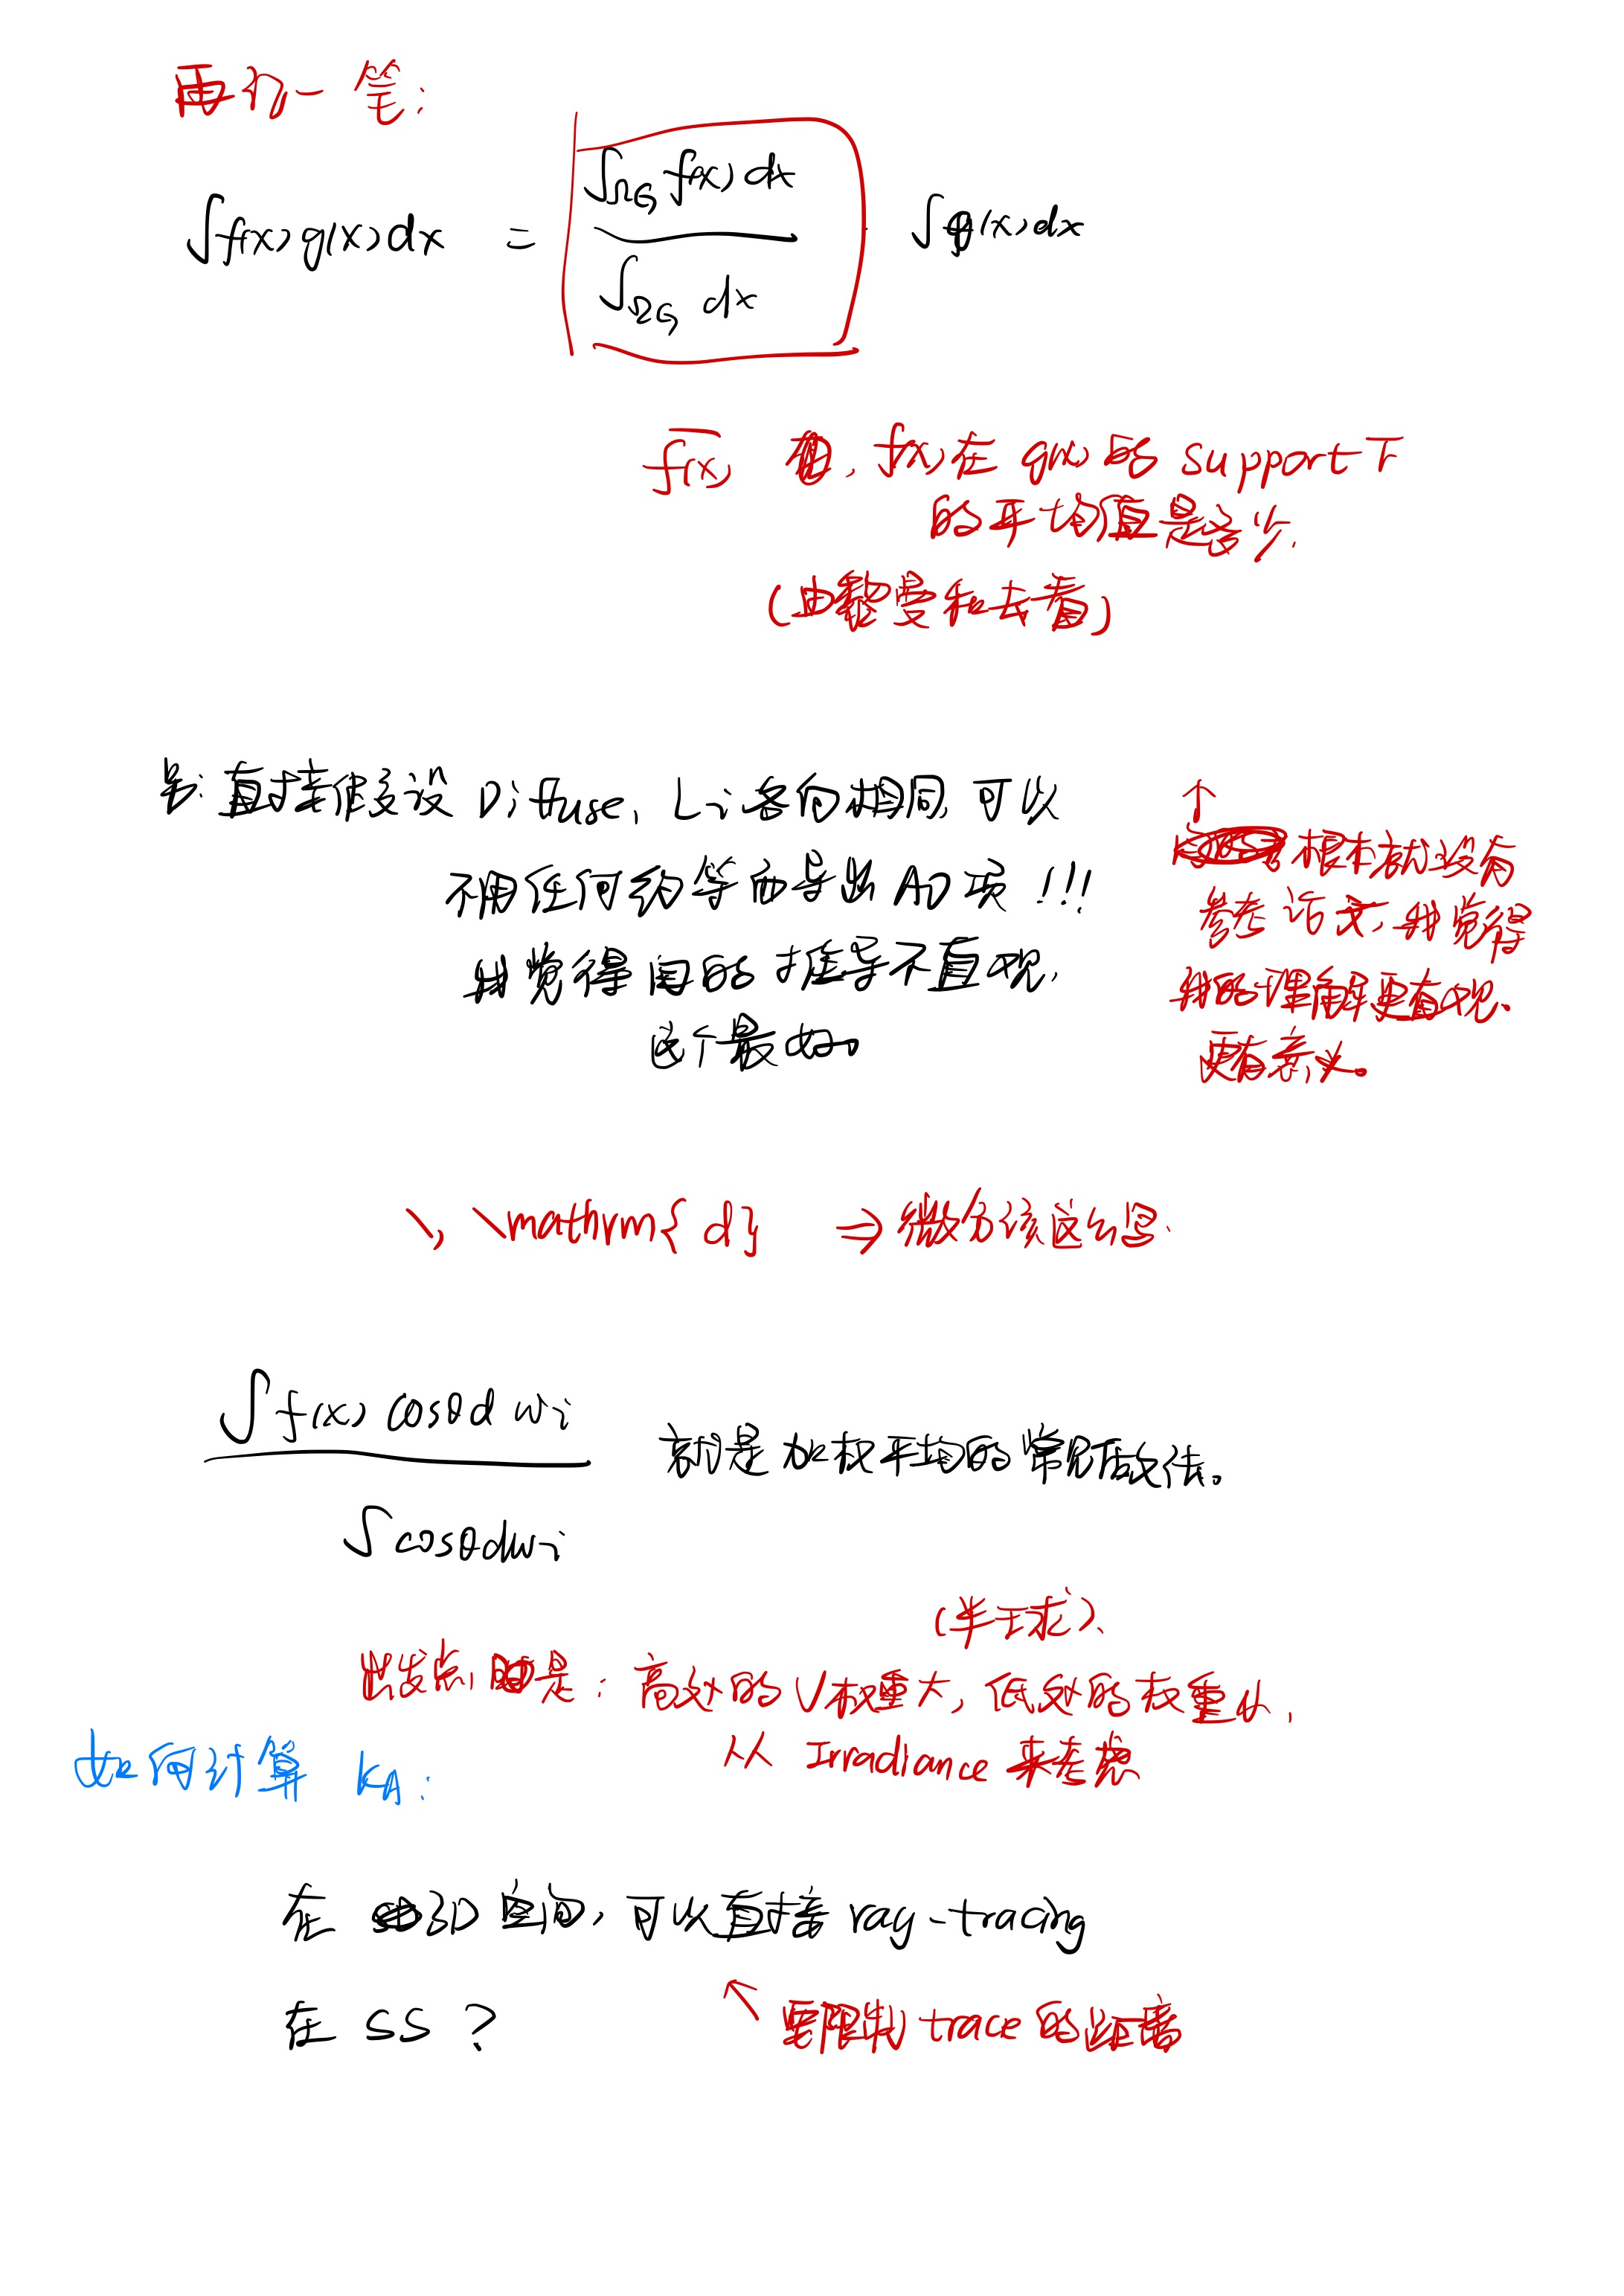 再补一笔:
∫f(x)g(x)dx = ∫_{ΩG} f(x)dx / ∫_{ΩG} dx · ∫g(x)dx
f(x) 在, f(x)在g(x)的support下
的平均值是多少.
(由整受和去看)
另: 直接假设Diffuse, Li各向相同, 可以
不用任何约等而导出AO项!!!
我觉得闫的推导不直观.
这个最好。
↑
根本就没有
参考论文, 我觉得
我的理解更直观.
更有意义。
\, \mathrm{d} ⇒ 微分该这么写.
∫f(x)cosθdωi
∫cosθdωi
就是加权平均的常见做法。
(半球).
出发点是: 高处的V权重大, 低处的权重小,
从Irradiance来考虑
如何计算 KA:
在3D空间, 可以直接ray-tracing
在SS?
↖ 要限制trace的距离